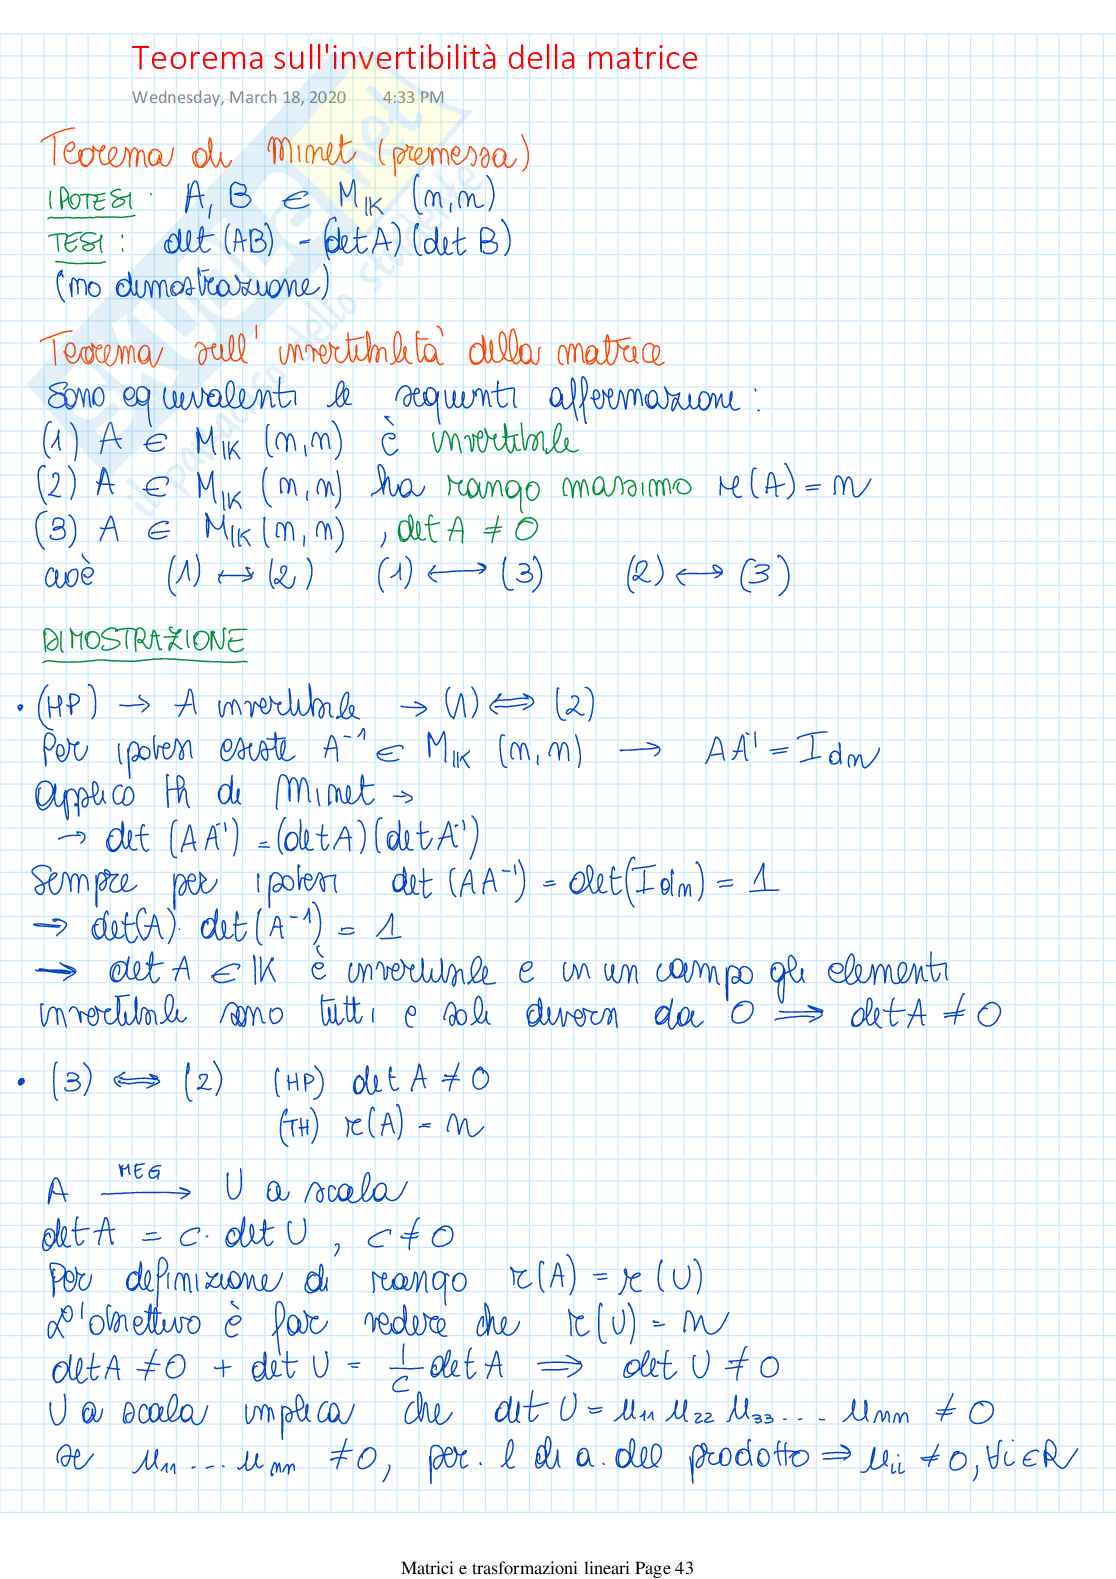 Teorema sull'invertibilità della matrice
Wednesday, March 18, 2020 4:33 PM
Teorema di Minet (premessa)
IPOTESI : A, B ∈ M_IK (n,n)
TESI : det (AB) = (det A) (det B)
(no dimostrazione)
Teorema sull'invertibilità della matrice
Sono equivalenti le seguenti affermazioni:
(1) A ∈ M_IK (n,n) è invertibile
(2) A ∈ M_IK (n,n) ha rango massimo r(A) = n
(3) A ∈ M_IK (n,n) , det A ≠ 0
cioè (1) ↔ (2) (1) ⟷ (3) (2) ⟷ (3)
DIMOSTRAZIONE
• (HP) → A invertibile → (1) ⟺ (2)
Per ipotesi esiste A⁻¹ ∈ M_IK (n,n) → AA⁻¹ = Idn
Applico th di Minet →
→ det (AA⁻¹) = (det A) (det A⁻¹)
Sempre per ipotesi det (AA⁻¹) = det(Idn) = 1
→ det(A) · det(A⁻¹) = 1
→ det A ∈ IK è invertibile e in un campo gli elementi
invertibili sono tutti e soli diversi da 0 ⟹ det A ≠ 0
• (3) ⟺ (2) (HP) det A ≠ 0
(TH) r(A) = n
A MEG → U a scala
det A = c · det U , c ≠ 0
Per definizione di rango r(A) = r(U)
L'obiettivo è far vedere che r(U) = n
det A ≠ 0 + det U = 1/c det A ⟹ det U ≠ 0
U a scala implica che det U = u₁₁ u₂₂ u₃₃ .... u_nn ≠ 0
se u₁₁ ... u_nn ≠ 0, per. l di a. del prodotto ⟹ u_ii ≠ 0, ∀i ∈ R
Matrici e trasformazioni lineari Page 43